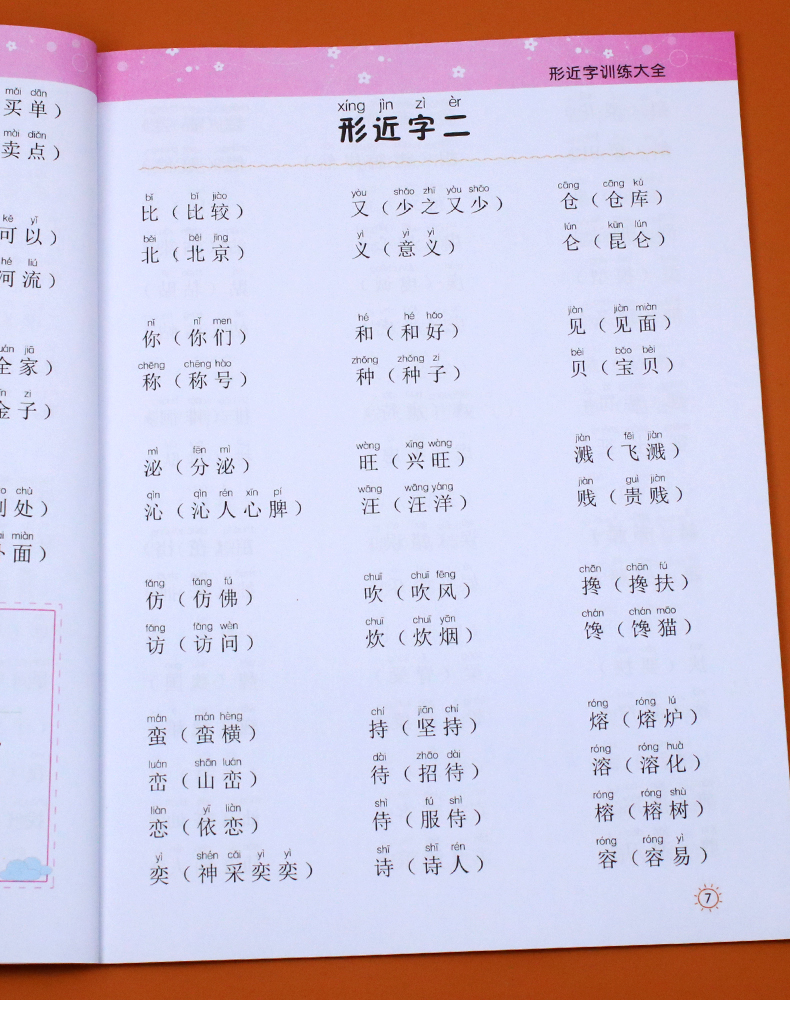 mǎi dān
买 单）
mài diǎn
卖 点）
kě yǐ
可 以）
hé liú
河 流）
jiā
全 家）
zi
金 子）
chù
到 处）
miàn
外 面）
形近字训练大全
xíng jìn zì èr
形近字二
bǐ bǐ jiào
比（比较）
běi běi jīng
北（北京）
yòu shǎo zhī yòu shǎo
又（少之又少）
yì yì yì
义（意义）
cāng cāng kù
仓（仓库）
lún kūn lún
仑（昆仑）
nǐ nǐ men
你（你们）
chēng chēng hào
称（称号）
hé hé hǎo
和（和好）
zhǒng zhǒng zi
种（种子）
jiàn jiàn miàn
见（见面）
bèi bǎo bèi
贝（宝贝）
mì fēn mì
泌（分泌）
qìn qìn rén xīn pí
沁（沁人心脾）
wàng xīng wàng
旺（兴旺）
wāng wāng yáng
汪（汪洋）
jiàn fēi jiàn
溅（飞溅）
jiàn guì jiàn
贱（贵贱）
fǎng fǎng fú
仿（仿佛）
fǎng fǎng wèn
访（访问）
chuī chuī fēng
吹（吹风）
chuī chuī yān
炊（炊烟）
chān chān fú
搀（搀扶）
chán chán māo
馋（馋猫）
mán mán hèng
蛮（蛮横）
luán shān luán
峦（山峦）
liàn yī liàn
恋（依恋）
yì shén cǎi yì yì
奕（神采奕奕）
chí jiān chí
持（坚持）
dài zhāo dài
待（招待）
shì fú shì
侍（服侍）
shī shī rén
诗（诗人）
róng róng lú
熔（熔炉）
róng róng huà
溶（溶化）
róng róng shù
榕（榕树）
róng róng yì
容（容易）
7